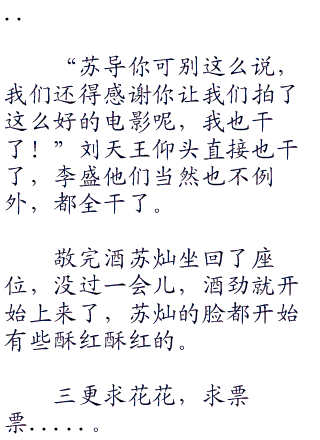 ..
“苏导你可别这么说，
我们还得感谢你让我们拍了
这么好的电影呢，我也干
了！”刘天王仰头直接也干
了，李盛他们当然也不例
外，都全干了。
敬完酒苏灿坐回了座
位，没过一会儿，酒劲就开
始上来了，苏灿的脸都开始
有些酥红酥红的。
三更求花花，求票
票.....。